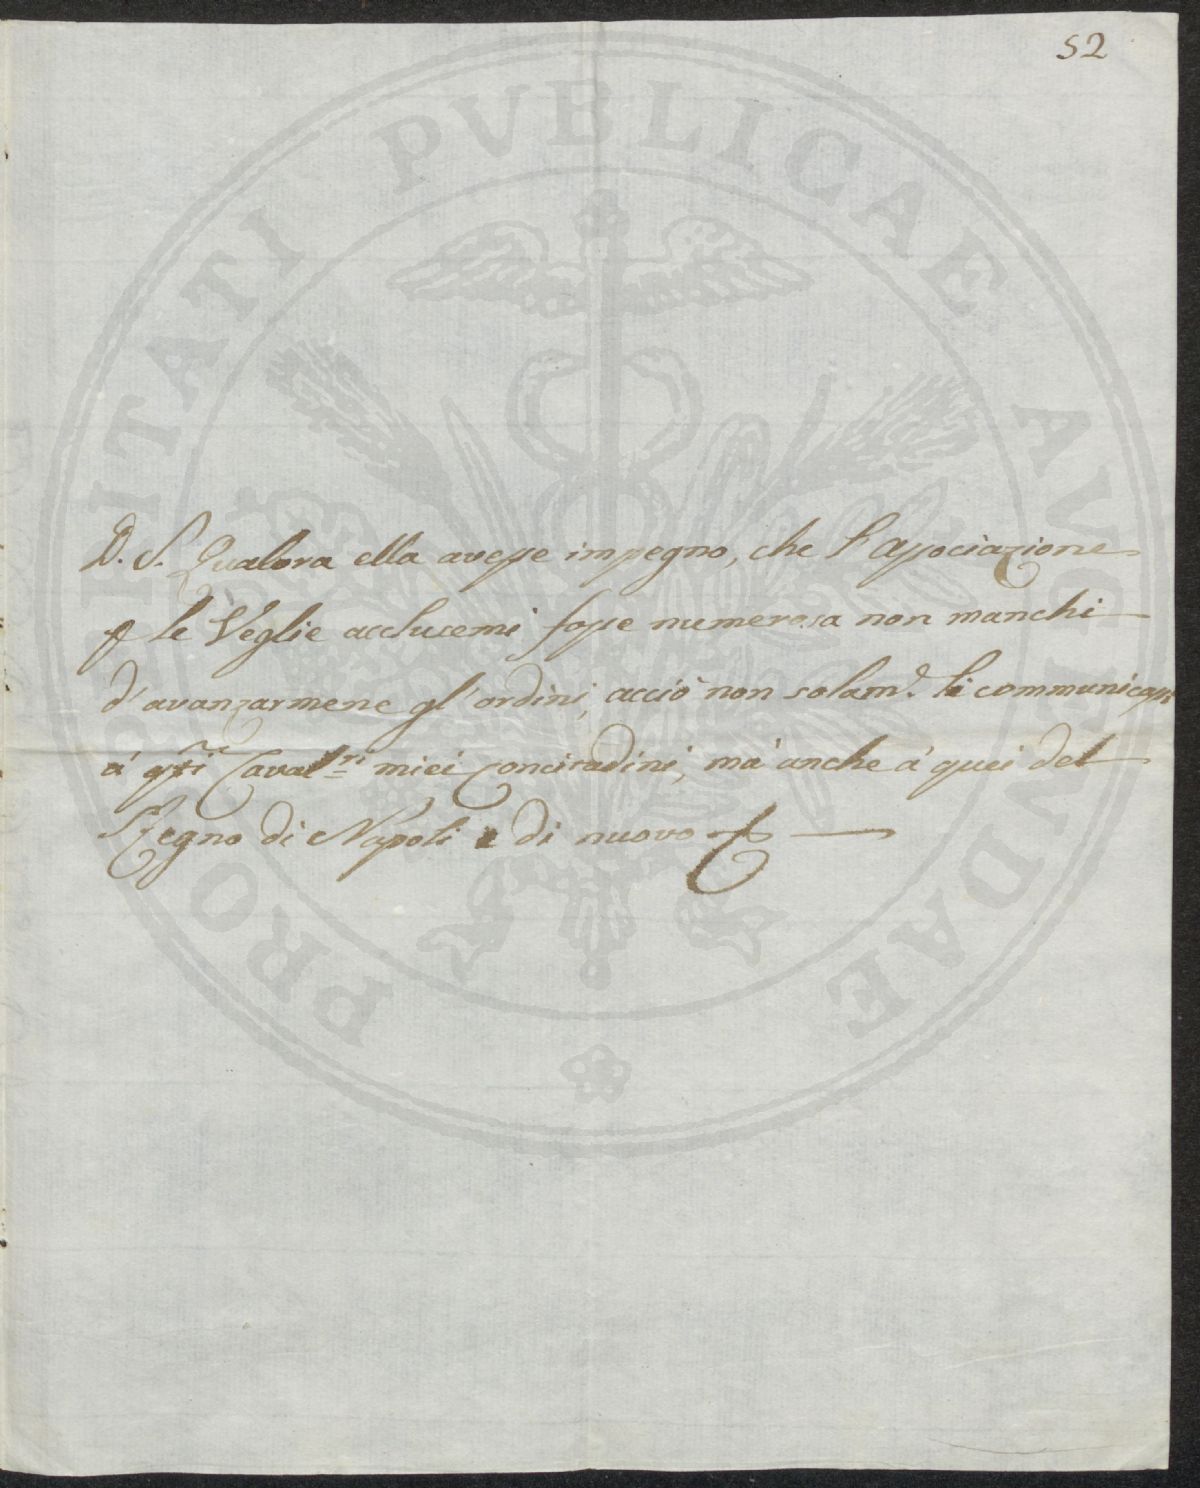 52
D. S. Qualora ella avesse impegno, che l'associazione
p le Veglie acclusemi fosse numerosa non manchi
d'avanzarmene gl'ordini, acciò non solam.e li communicassi
à q.sti Caval.ri miei Concittadini, mà anche à quei del
Regno di Napoli e di nuovo
PROSPERITATI PVBLICAE AVGENDAE